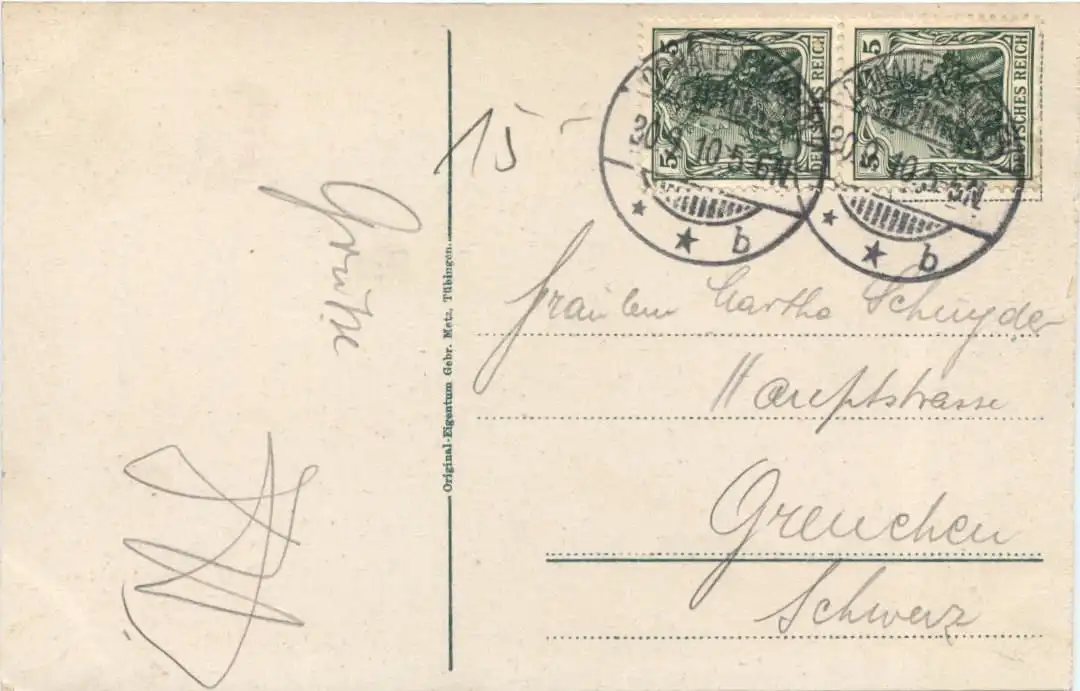 15 -
Grüße
Original-Eigentum Gebr. Metz, Tübingen.
5 DEUTSCHES REICH 5
5 DEUTSCHES REICH 5
20.9.10.5-6N
b
20.9.10.5-6N
b
Fräulein Martha Schnyder
Hauptstrasse
Grenchen
Schweiz